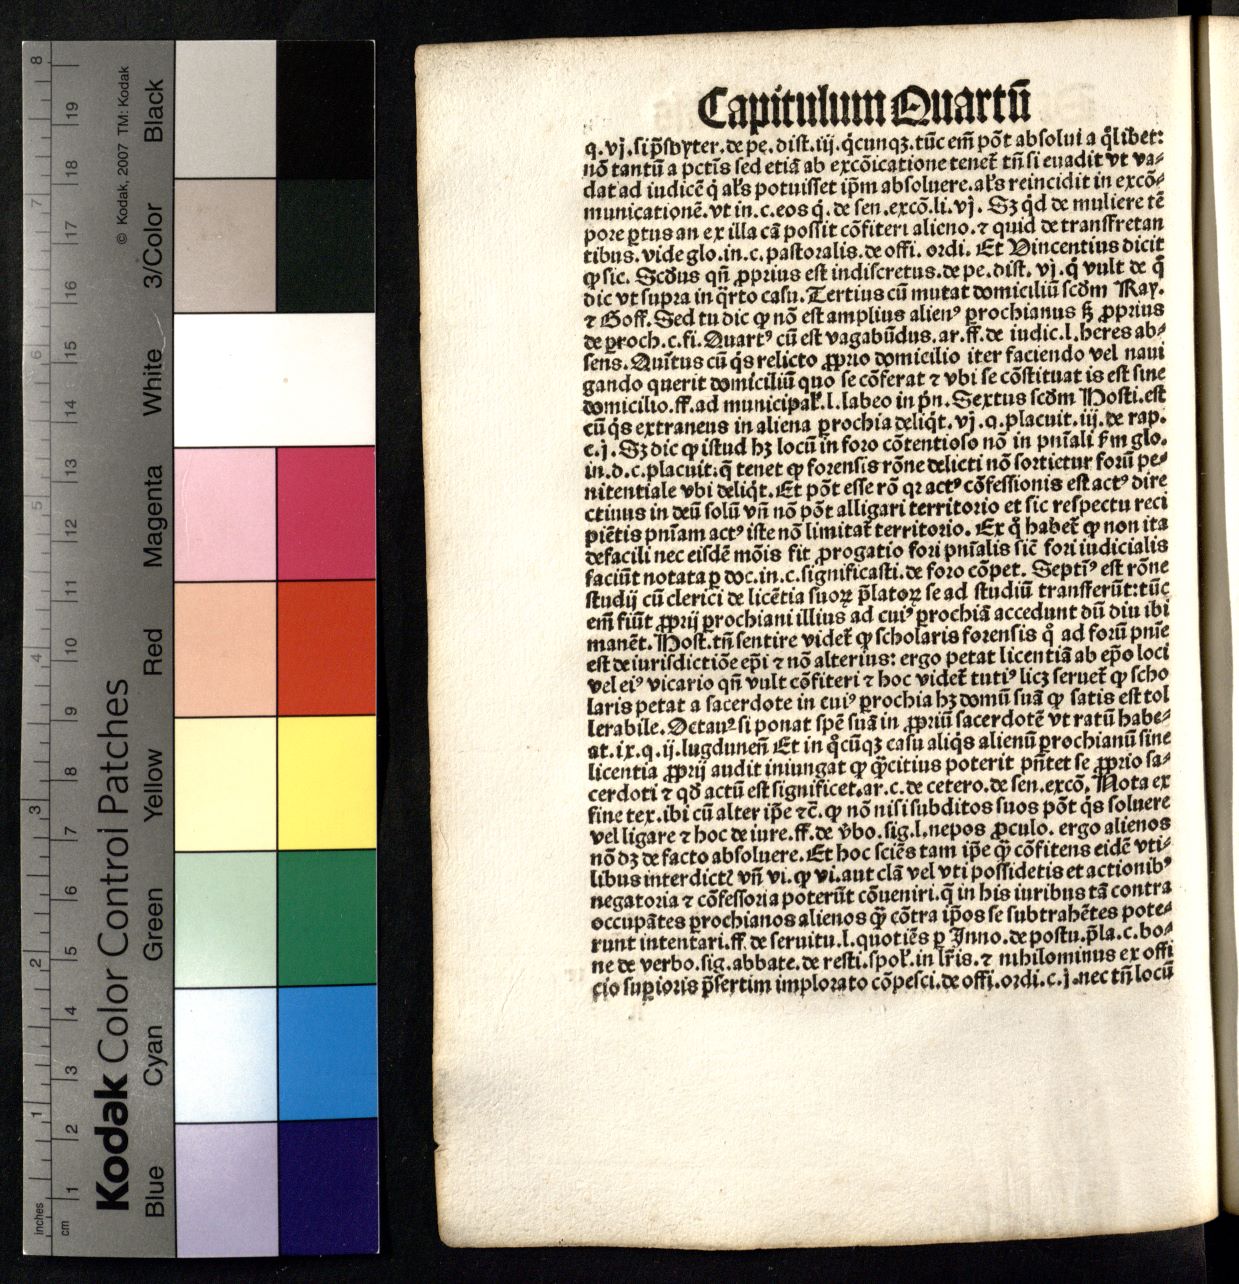 8
7
6
5
4
3
2
1
inches
19
18
17
16
15
14
13
12
11
10
9
8
7
6
5
4
3
2
1
cm
© Kodak, 2007 TM: Kodak
Kodak Color Control Patches
Black
3/Color
White
Magenta
Red
Yellow
Green
Cyan
Blue
Capitulum Quartū
q.vj.si p̄sbyter.de pe.dist.iij.q̇cunqꝫ.tūc em̄ pōt absolui a q̄libet:
nō tantū a pctīs sed etiā ab excōicatione tenet̄ tn̄ si euadit vt va⸗
dat ad iudicē q̇ al's potuisset ip̄m absoluere.al's reincidit in excō⸗
municationē.vt in.c.eos q̇.de sen.excō.li.vj. Sꝫ q̇d de muliere tē
pore ꝑtus an ex illa cā possit cōfiteri alieno.⁊ quid de transfretan
tibus.vide glo.in.c.pastoralis.de offi.ordi. Et Vincentius dicit
ꝙ sic. Scd̄us qn̄ ꝓprius est indiscretus.de pe.dist. vj.q̇ vult de q̄
dic vt supra in q̄rto casu. Tertius cū mutat domiciliū scd̄m Ray.
⁊ Goff. Sed tu dic ꝙ nō est amplius alienꝰ ꝑrochianus sꝫ ꝓprius
de ꝑroch.c.fi. Quartꝰ cū est vagabūdus.ar.ff.de iudic.l.heres ab⸗
sens. Quītus cū q̇s relicto ꝓprio domicilio iter faciendo vel naui
gando querit domiciliū quo se cōferat ⁊ vbi se cōstituat is est sine
domicilio.ff.ad municipal'.l.labeo in p̄n. Sextus scd̄m Hosti.est
cū q̇s extraneus in aliena ꝑrochia deliq̇t.vj.q.placuit.iij.de rap.
c.j. Sꝫ dic ꝙ istud hꝫ locū in foro cōtentioso nō in pnīali ẜm glo.
in.d.c.placuit.q̄ tenet ꝙ forensis rōne delicti nō sortietur forū pe⸗
nitentiale vbi deliq̇t. Et pōt esse rō qꝛ actꝰ cōfessionis est actꝰ dire
ctiuus in deū solū vn̄ nō pōt alligari territorio et sic respectu reci
piētis pnīam actꝰ iste nō limitat̄ territorio. Ex q̇ habet̄ ꝙ non ita
defacili nec eisdē mōis fit ꝓrogatio fori pnīalis sic̄ fori iudicialis
faciūt notata ꝑ doc.in.c.significasti.de foro cōpet. Septīꝰ est rōne
studij cū clerici de licētia suoꝝ p̄latoꝝ se ad studiū transferūt:tūc
em̄ fiūt ꝓprij ꝑrochiani illius ad cuiꝰ ꝑrochiā accedunt dū diu ibi
manēt. Host.tn̄ sentire videt̄ ꝙ scholaris forensis q̇ ad forū pnīe
est de iurisdictiōe ep̄i ⁊ nō alterius: ergo petat licentiā ab ep̄o loci
vel eiꝰ vicario qn̄ vult cōfiteri ⁊ hoc videt̄ tutiꝰ licꝫ seruet̄ ꝙ scho
laris petat a sacerdote in cuiꝰ ꝑrochia hꝫ domū suā ꝙ satis est tol
lerabile. Octauꝰ si ponat spē suā in ꝓpriū sacerdotē vt ratū habe⸗
at.ix.q.ij.lugdunen̄ Et in q̊cūqꝫ casu aliq̇s alienū ꝑrochianū sine
licentia ꝓprij audit iniungat ꝙ q̄citius poterit pn̄tet se ꝓprio sa⸗
cerdoti ⁊ qd̄ actū est significet.ar.c.de cetero.de sen.excō. Nota ex
fine tex.ibi cū alter ip̄e ⁊c̄.ꝙ nō nisi subditos suos pōt q̇s soluere
vel ligare ⁊ hoc de iure.ff.de v̄bo.sig.l.nepos ꝓculo. ergo alienos
nō dꝫ de facto absoluere. Et hoc sciēs tam ip̄e q̄ cōfitens eidē vti⸗
libus interdictꝭ vn̄ vi.ꝙ vi.aut clā vel vti possidetis et actionibꝰ
negatoria ⁊ cōfessoria poterūt cōueniri.q̄ in his iuribus tā contra
occupātes ꝑrochianos alienos q̄ cōtra ip̄os se subtrahētes pote⸗
runt intentari.ff.de seruitu.l.quotiēs ꝑ Inno.de postu.p̄la.c.bo⸗
ne de verbo.sig.abbate.de resti.spol'.in lr̄is.⁊ nihilominus ex offi
cio suꝑioris p̄sertim implorato cōpesci.de offi.ordi.c.j.nec tn̄ locū